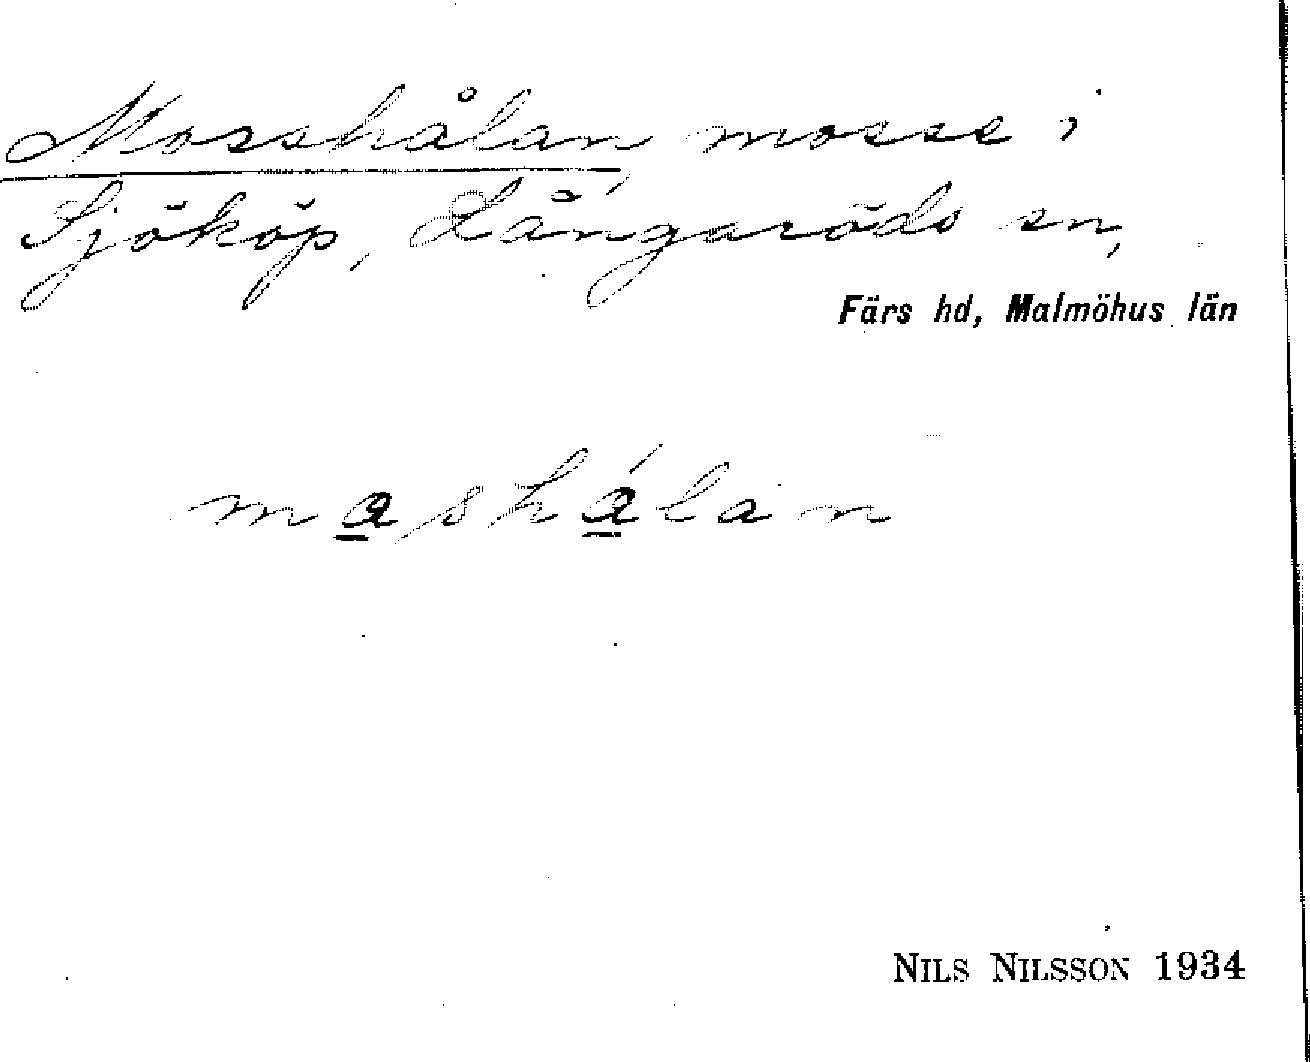 Mosshålan, mosse i
Sjököp, Långaröds sn,
Färs hd, Malmöhus län
mashálan
NILS NILSSON 1934